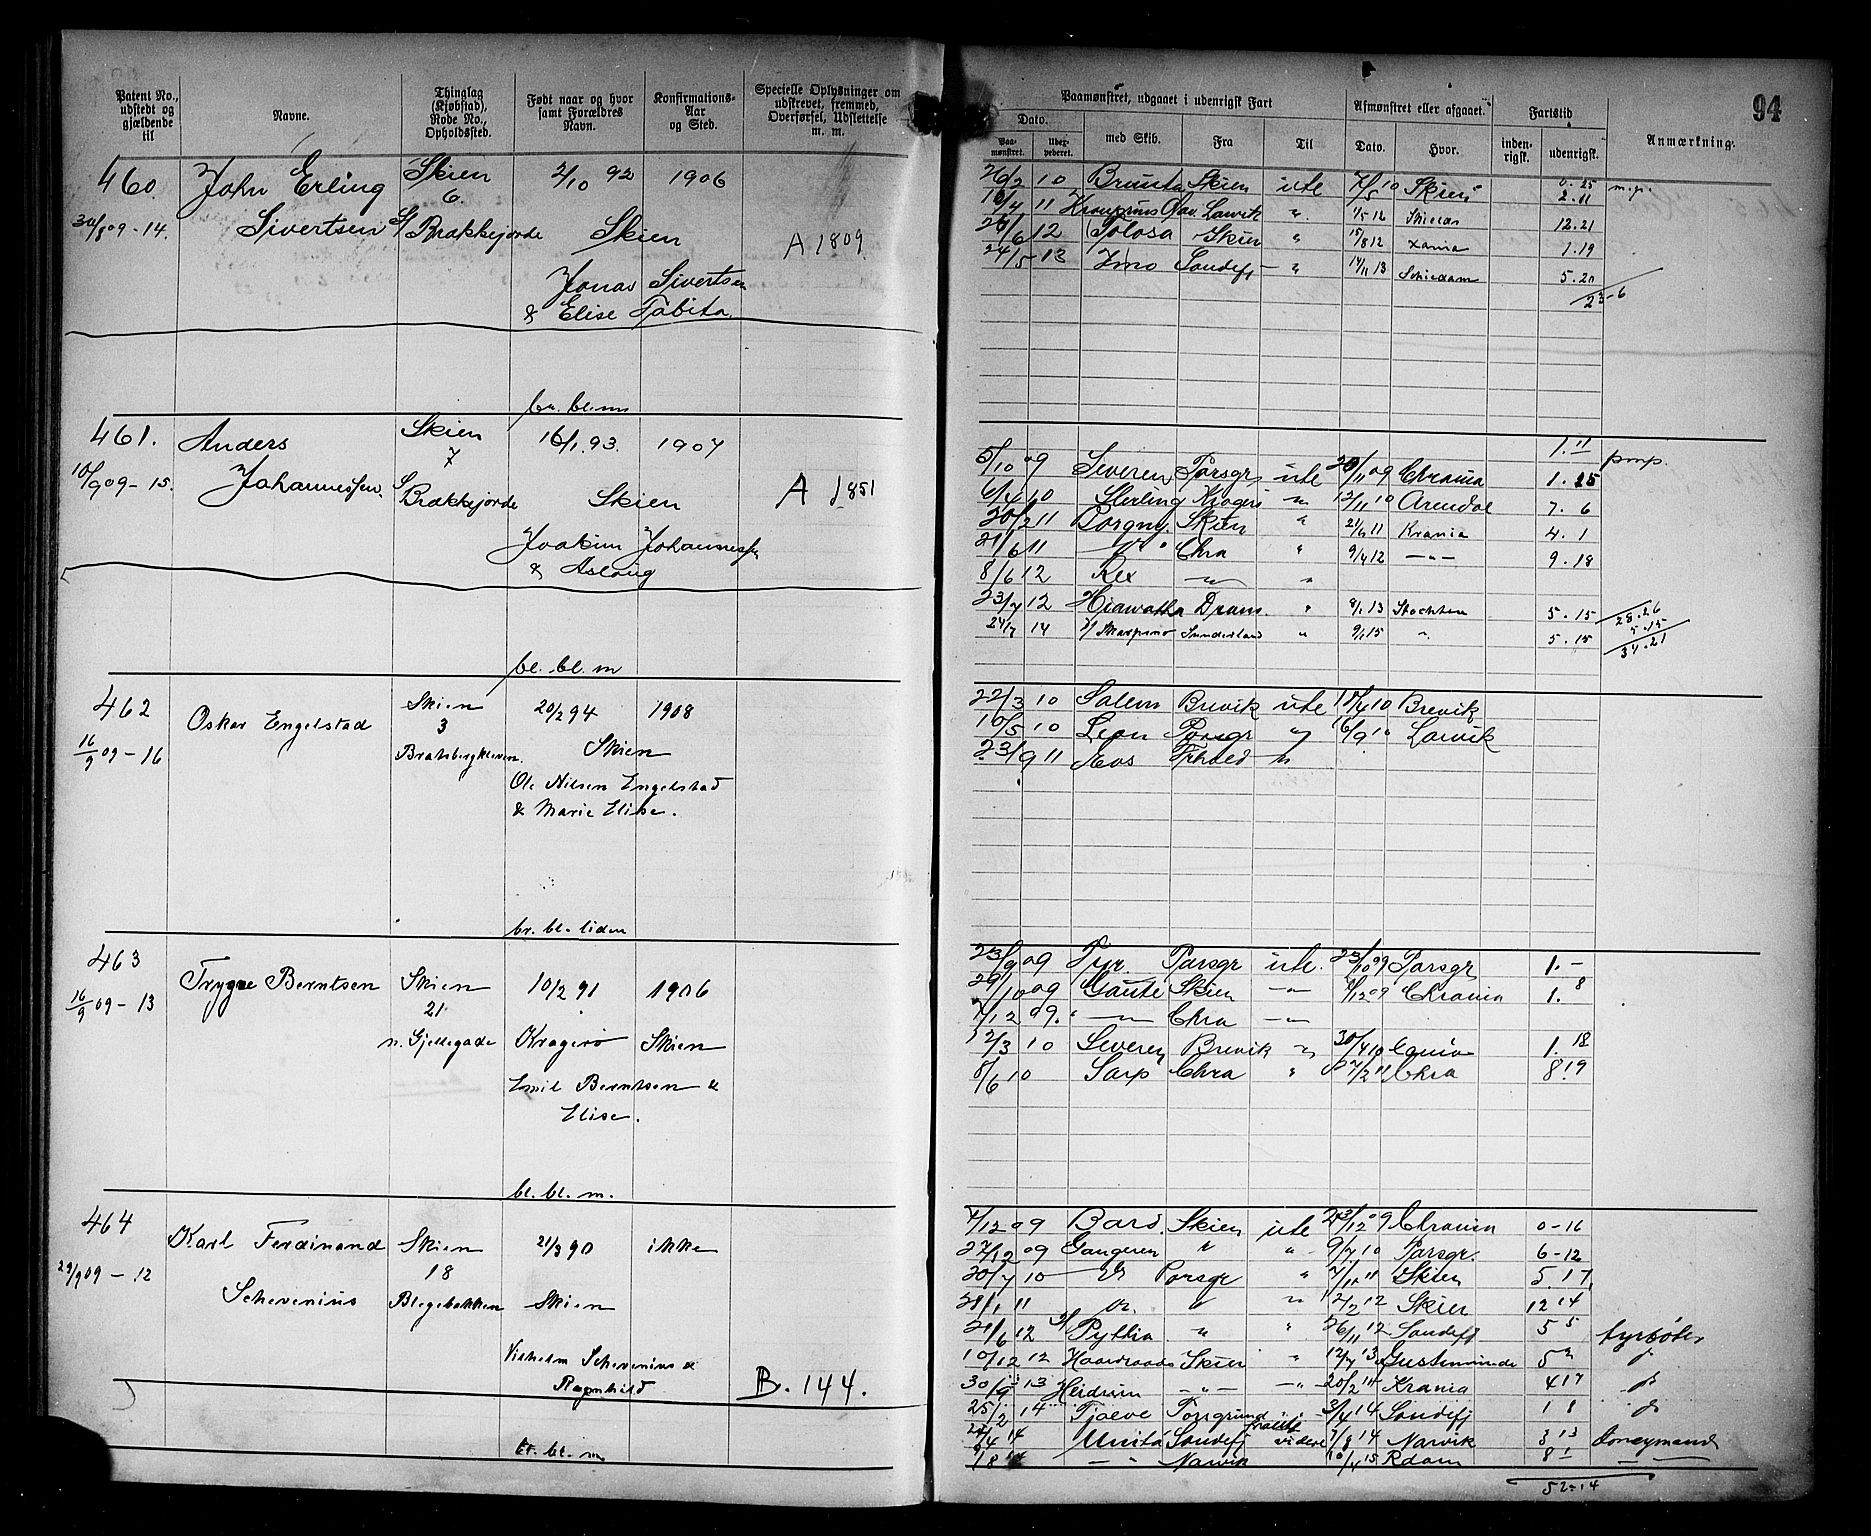 94
Patent No., udstedt og gjældende til
Navne.
Thinglag (Kjøbstad), Rode No., Opholdssted.
Født naar og hvor samt Forældres Navn.
Konfirmations-Aar og Sted.
Specielle Oplysninger om udskrevet, fremmed, Overførsel, Udslettelse m. m.
Paamønstret, udgaaet i udenrigsk Fart
Dato.
Paamønstret.
med Skib.
Fra
Til
Afmønstret eller afgaaet.
Dato.
Hvor.
Fartstid
indenrigsk.
udenrigsk.
Anmærkning.
460 John Erling Skien 2/10 92 1906
6
30/8 09-14. Sivertsen Brækkejorde Skien A 1809
Jonas Sivertsen
& Elise Tabita
br. bl. m
26/2 10 Skien ute 7/5 10 Skien 0.25
2.11
11 Kronprins Gav. Larvik " 1/5 12 12.21
12 Tolosa Skien " 15/8 12 Xania 1.19
24/5 13 Imo Sandefj " 14/11 13 Schiedam 5.20
23-6
461. Anders Skien 16/1 93 1907
7
10/9 09-15. Johannessen Brækkejorde Skien A 1851
Joakim Johannessen
& Aslaug
bl. bl. m
1.11
5/10 09 Severen Porsgr ute 09 Chrania 1.25 pmp.
6/4 10 Sterling Kragerø " 12/11 10 Arendal 7.6
20/2 11 Borgny Skien " 21/6 11 Krania 4.1
21/6 11 Chra " 9/4 12 -"- 9.18
8/6 12 Rex -"- "
23/7 12 Hiawatha Dram " 8/1 13 5.15 28.26
24/7 14 Sunderland " 9/1 15 " 5.15 5.15
34.21
462 Oskar Engelstad Skien 20/2 94 1908
3
16/9 09-16 Bratsbergkleven. Skien
Ole Nilsen Engelstad
& Marie Elise.
br. bl. liden
22/3 10 Salem Brevik ute 10 Brevik
10/5 10 Leon Porsgr " 16/9 10 Larvik
23/9 11
463 Trygve Berntsen Skien 10/2 91 1906
21
16/9 09-13 n. Gjellegade Kragerø Skien
Emil Berntsen &
Elise.
bl. bl. m.
23/9 09 Tyr. Porsgr ute. 23/10 09 Porsgr 1.-
29/10 09 Gauti Skien -"- 12 09 Chrania 1.8
7/12 09. -"- Chra -"-
12/3 10 Severen Brevik " 30/4 10 1.18
8/6 10 Sarp Chra " 27/2 11 Chra 8.19
464 Karl Ferdinand Skien 21/3 90 ikke
18
29/9 09-12 Schevenius Blegebakken Skien
Vilhelm Schevenius &
Ragnhild B. 144.
br. bl. m
7/12 09 Bard Skien ute 23/12 09 Chrania 0-16
27/12 09 Gangeren " " 9/7 10 Porsgr. 6-12
20/7 10 Porsgr " 7/1 11 Skien 5.17
21/1 11 " " 2/2 12 Skien 12 14
21/6 12 Pythia " " 26/11 12 Sandefj 5 5 fyrbøter
10/12 12 Haardraade Skien " 12/7 13
30/9 13 Heidrun -"- -"- 20/2 14 Krania 4 17
25/2 14 Tjalve Porsgrund 3/4 14 Sandefj 1 8
24/4 14 Unita Sandefj 7/8 14 Narvik 3 13 donkeymand
7/8 14 -"- Narvik 10/4 15 Rdam 8 1 -"-
52-14